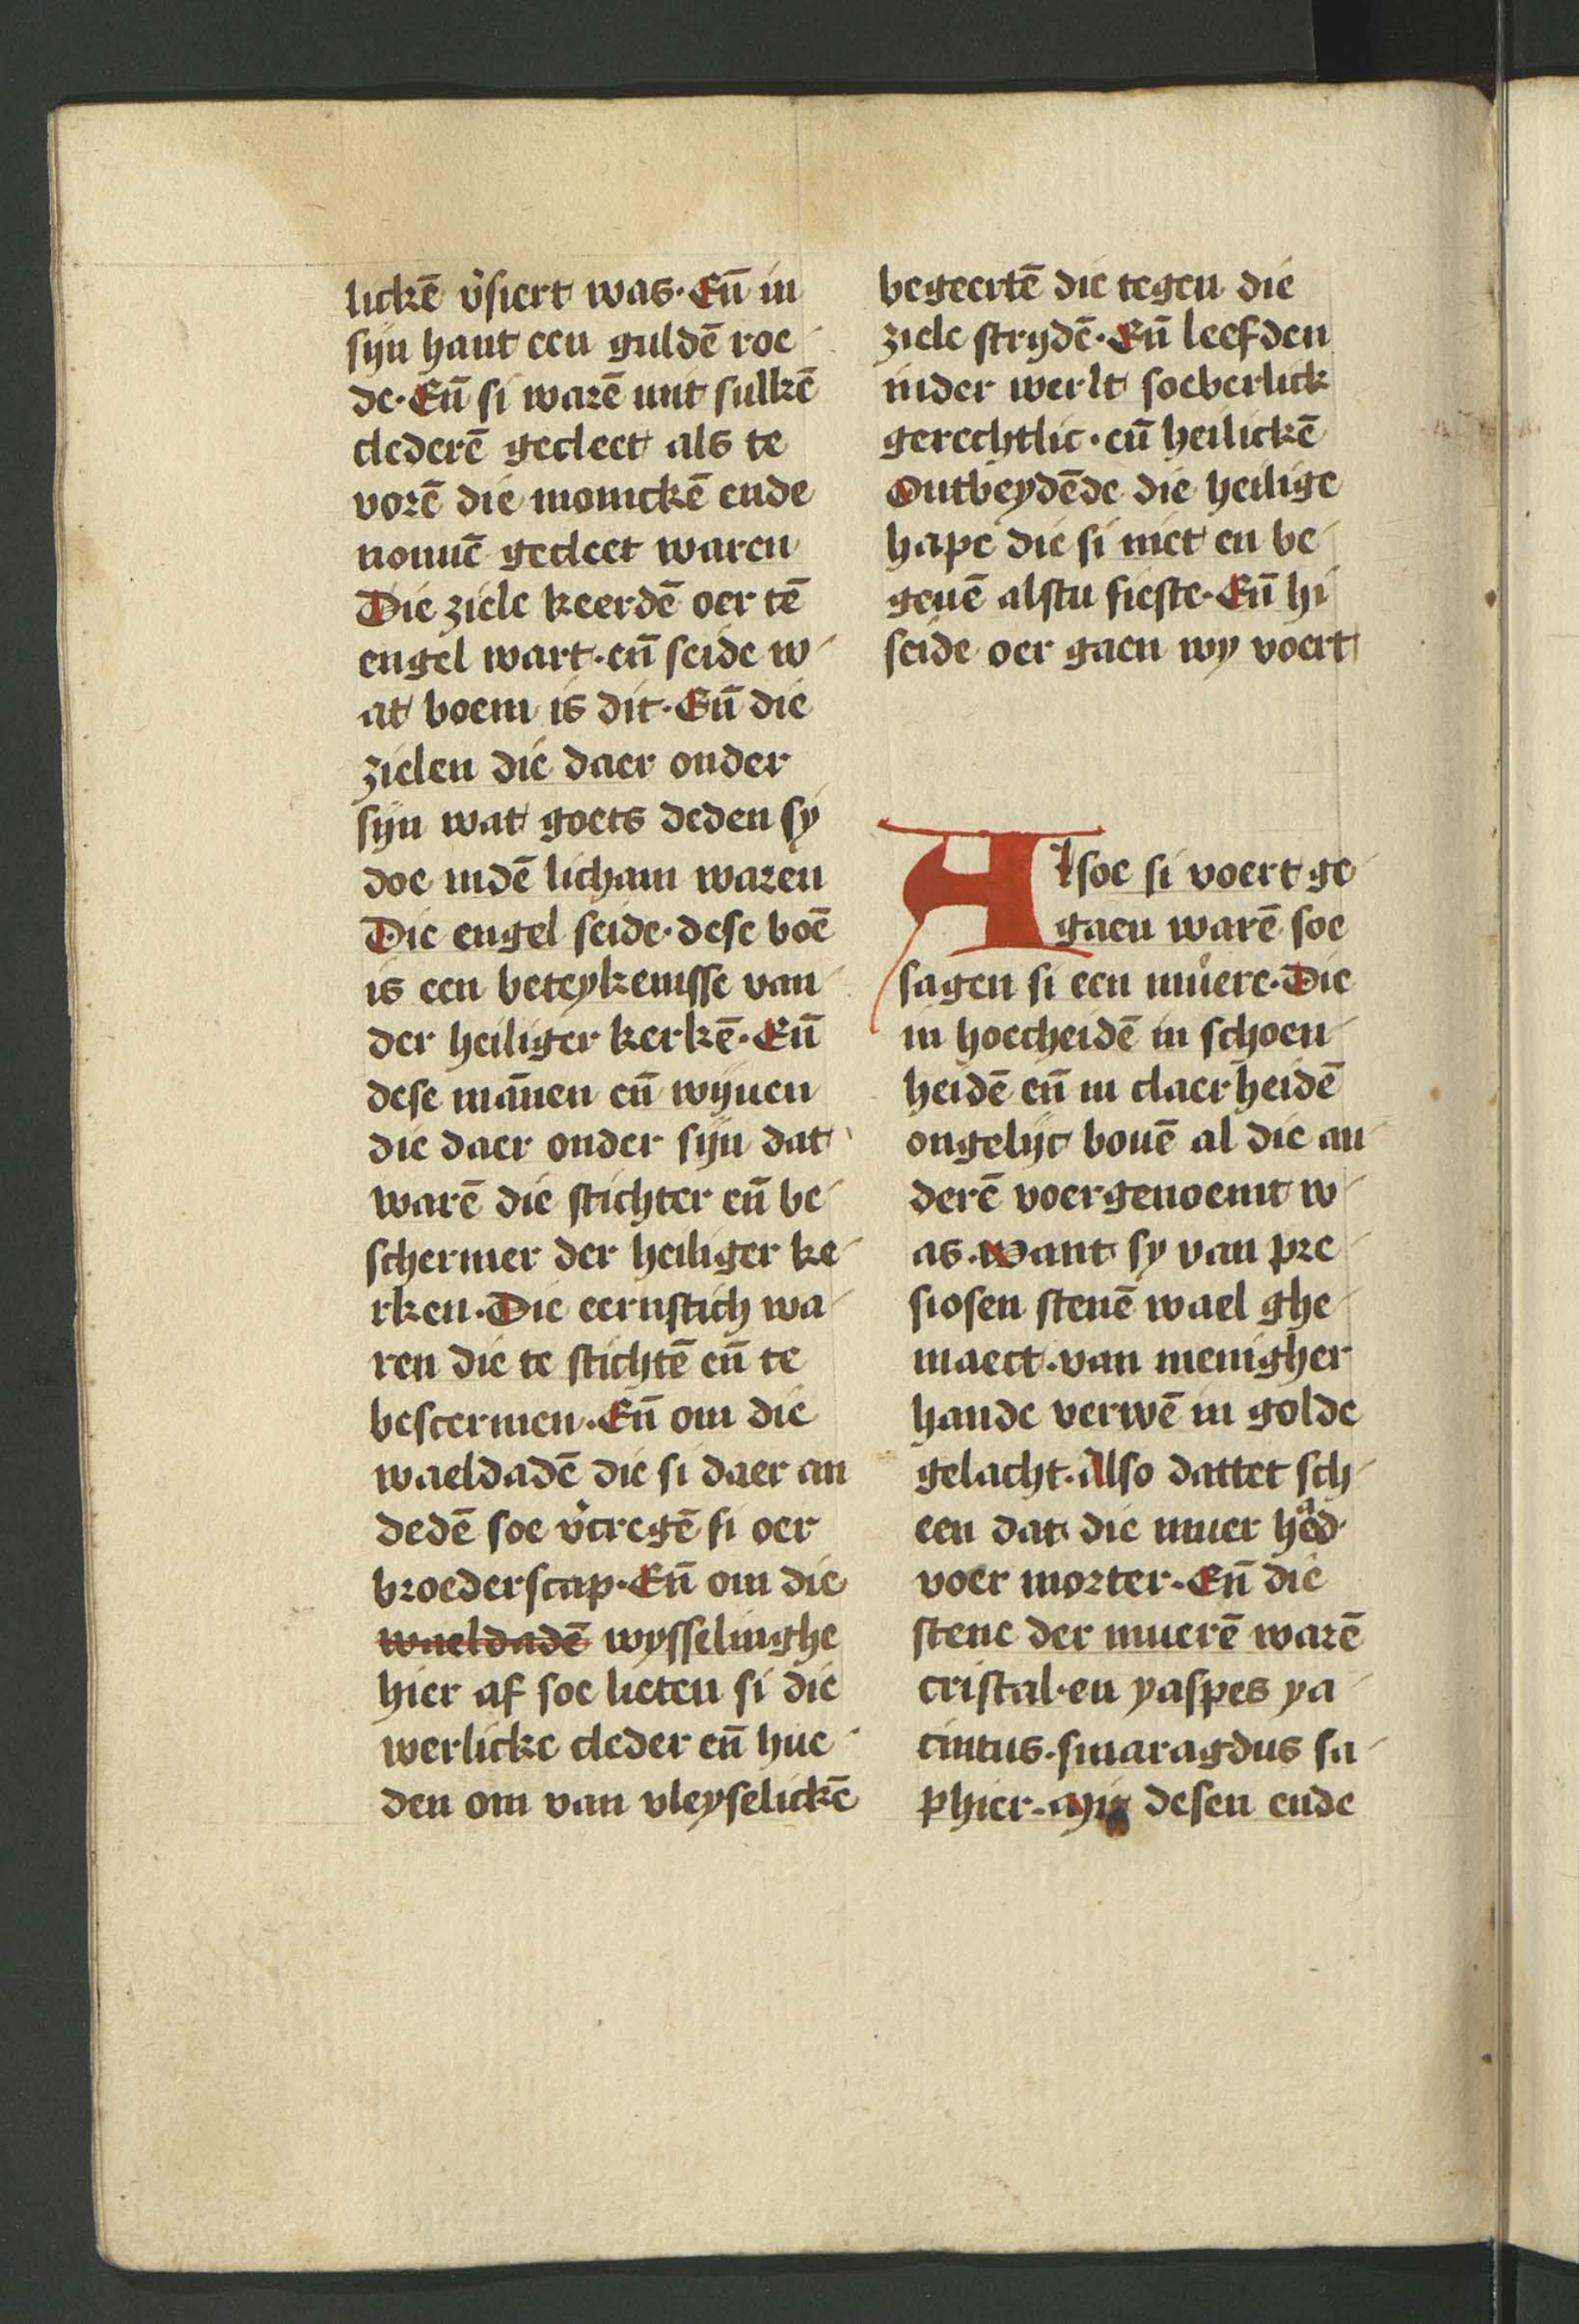 lickē v̓siert was. En̄ in
sijn hant een guldē roe
de. En̄ si warē mit sulkē
clederē gecleet als te
vorē die monickē ende
nonnē gecleet waren
Die ziele keerdē oer tē
engel wart. en̄ seide w
at boem is dit. En̄ die
zielen die daer onder
sijn wat goets deden sy
doe indē licham waren
Die engel seide. dese boē
is een beteykenisse van
der heiliger kerkē. En̄
dese mān̄en en̄ wijuen
die daer onder sijn dat
warē die stichter en̄ be
schermer der heiliger ke
rken. Die eernstich wa
ren die te stichtē en̄ te
bescermen. En̄ om die
waeldadē die si daer an
dedē soe v̓cregē si oer
broederscap. En̄ om die
waeldadē wysselinghe
hier af soe lieten si die
werlicke cleder en̄ hue
den om van vleyselickē
begeertē die tegen die
ziele strydē. En̄ leefden
inder werlt soeberlick
gerechtlic. en̄ heilickē
Ontbeydēde die heilige
hape die si niet en be
geuē alstu sieste. En̄ hi
seide oer gaen wy voert
Alsoe si voert ge
gaen warē soe
sagen si een mu̇ere. Die
in hoecheidē in schoen
heidē en̄ in claerheidē
ongelijc bouē al die an
derē voergenoemt w
as. Want sy van pre
siosen stenē wael ghe
maect. van menigher
hande verwē in golde
gelacht. Also dattet sch
een dat die muer had
voer morter. En̄ die
stene der muerē warē
cristal. en yaspes ya
cintus. smaragdus sa
phier. Mit desen ende